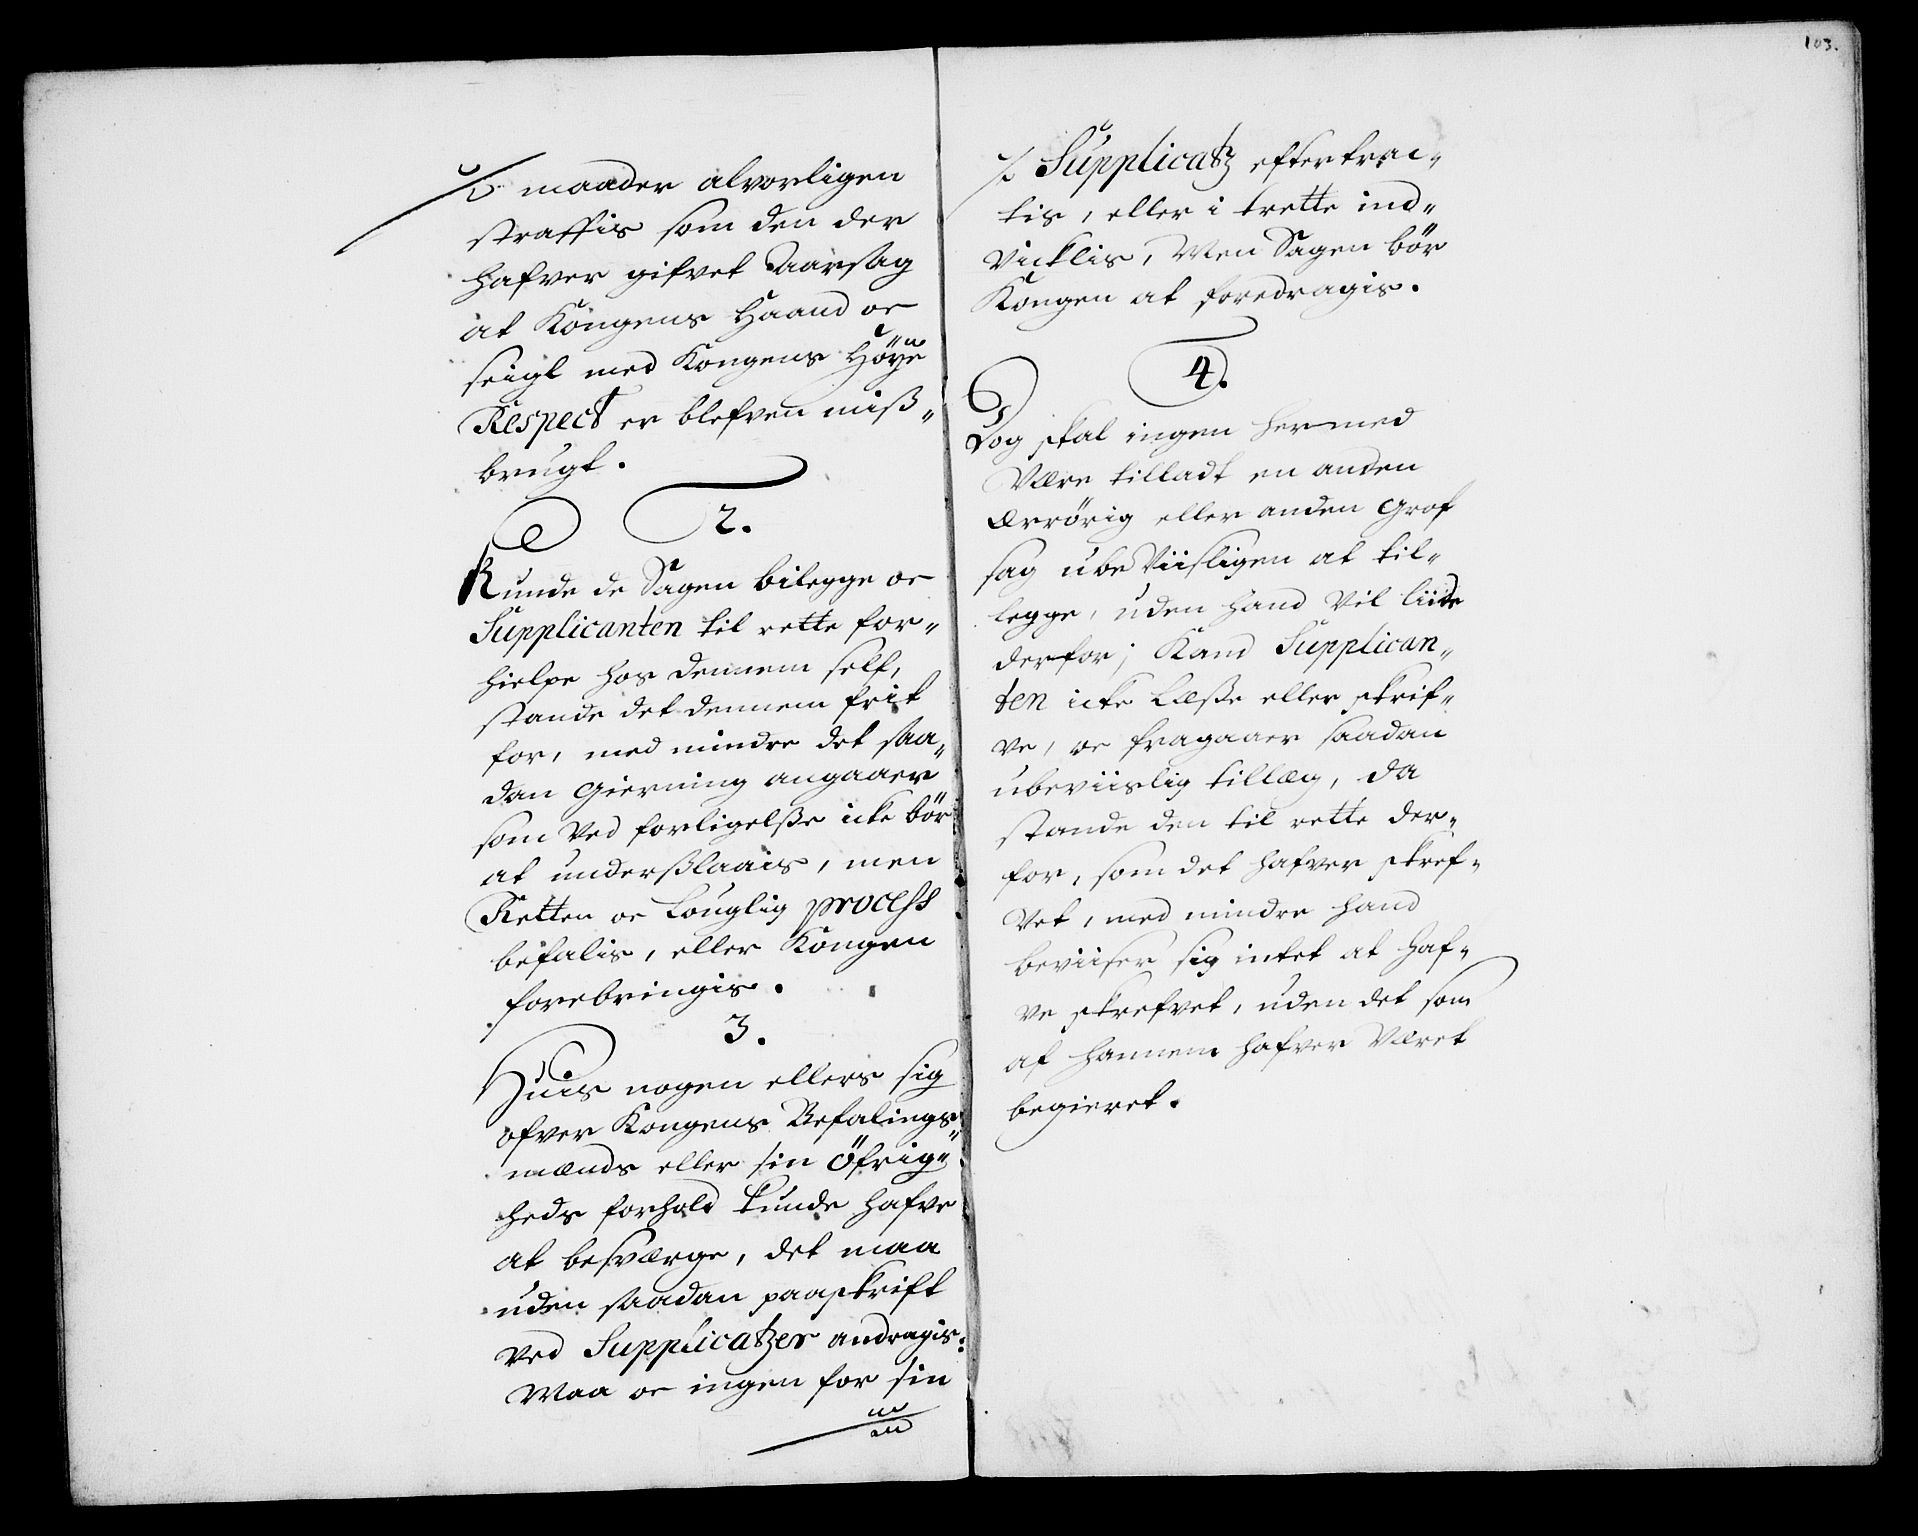 maader alvorligen
straffis som den der
hafver gifvet Aarsag
at Kongens Haand oc
seigl med Kongens Höÿe
Respect er blefven miß„
brugt.
2.
Kunde de Sagen bilegge oc
Supplicanten til rette for„
hielpe hos dennem self,
stande det dennem frit
for, med mindre det saa„
dan Gierning angaaer
som ved forligelße icke bör
at underßlaais, men
Retten oc Louglig process
befalis, eller Kongen
forebringis.
3.
Huis nogen ellers sig
ofver Kongens Befalings„
mænds eller sin Öfrig„
heds forhold kunde hafve
at besværge, det maa
uden saadan paaskrift
ved Supplicatzer andragis:
Maa oc ingen for sin
103.
Supplicatz eftertrac„
tis, eller i trette ind„
vicklis, Men Sagen bör
Kongen at foredragis.
4.
Dog skal ingen hermed
Være tilladt en anden
ærrörig eller anden Grof
sag ubeViisligen at til„
legge, uden hand Vil liide
derfor; Kand Supplican„
ten icke Læße eller skrif„
ve, oc fragaaer saadan
ubeviislig tillæg, da
stande den til rette der„
for, som det hafver skref„
Vet, med mindre hand
beviiser sig intet at haf„
ve skrefvet, uden det som
af hannem hafver Været
begieret.